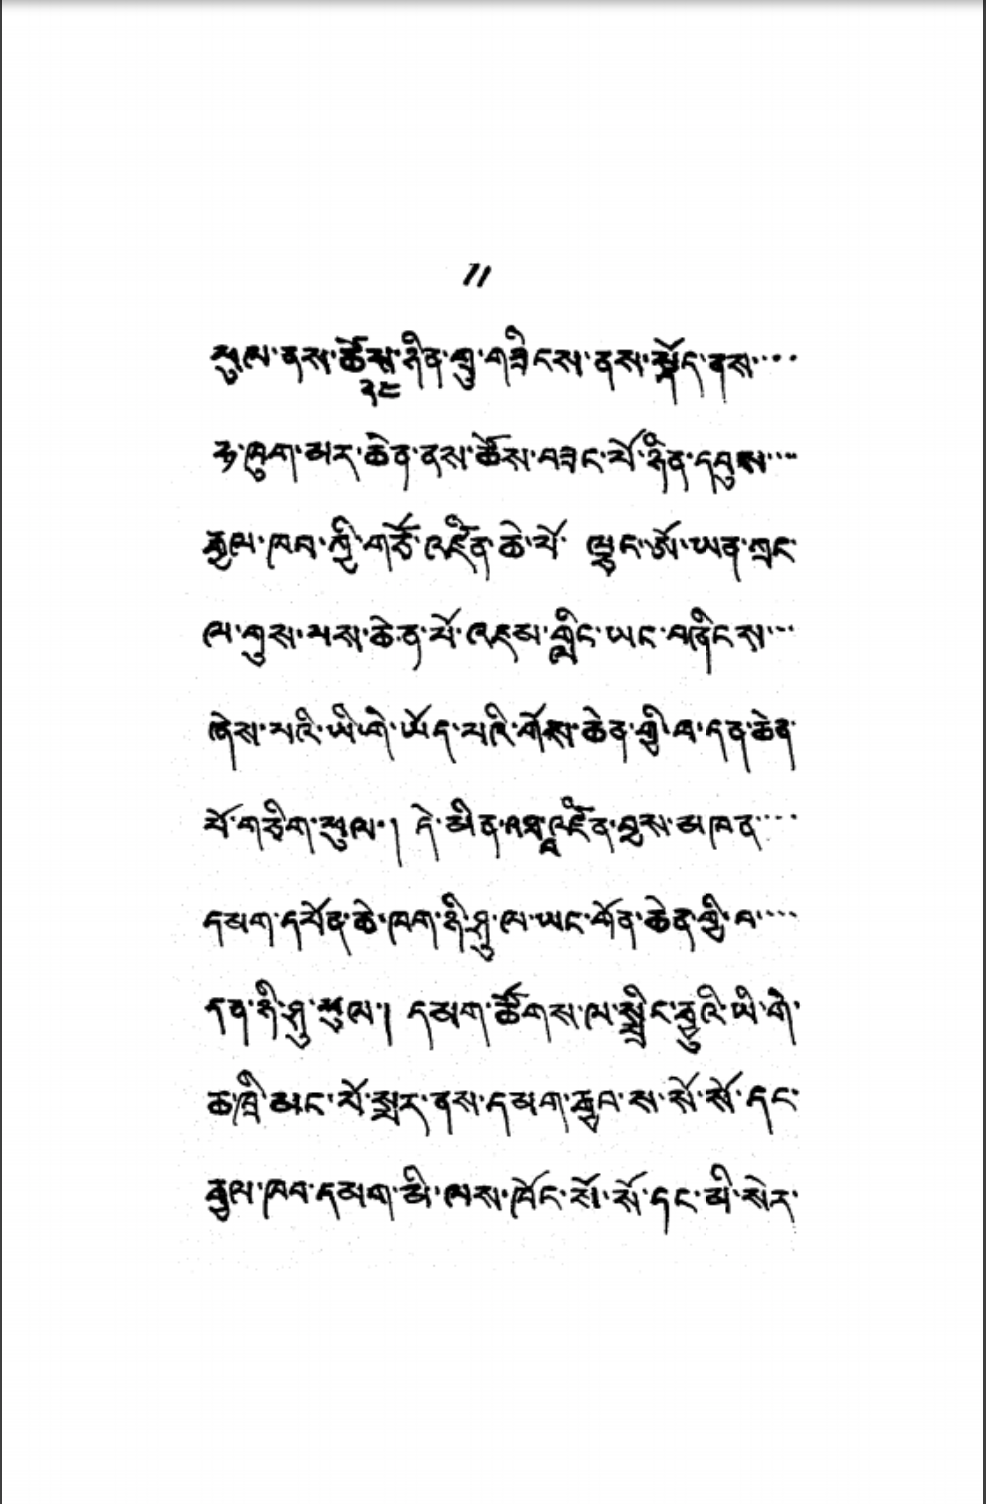 11
ཕུལ་ནས་ཚེས་ཉིན་གྲུ་གཟིངས་ནས་སྡོད་ནས་····
༢༩
ཏ་ཁུག་མར་ཆེན་ནས་ཚེས་བཟང་པོ་ཉིན་དབུས་···
རྒྱལ་ཁབ་ཀྱི་གཙོ་འཛིན་ཆེ་པོ་ ལྷྭང་ཨོ་ཡན་ཀྲང་
ལ་གུས་པས་ཆེན་པོ་འཇམ་གླིང་ཡང་བཞིངས་···
ཞེས་པའི་ཡི་གེ་ཡོད་པའི་གོས་ཆེན་གྱི་བ་དན་ཆེན་
པོ་གཅིག་ཕུལ་། དེ་མིན་འཛིན་བྱས་མཁན་····
དམག་དཔོན་ཆེ་ཁག་ཉི་ཤུ་ལ་ཡང་གོན་ཆེན་གྱི་བ་····
དན་ཉི་ཤུ་ཕུལ་། དམག་ཚོགས་ལ་སློང་རྒྱུའི་ཡི་གེ་
ཆ་ཁྲི་མང་པོ་སྤར་ནས་དམག་རྒྱབ་ས་སོ་སོ་དང་
རྒྱལ་ཁབ་དམག་མི་ལས་ཁོང་སོ་སོ་དང་མི་སེར་